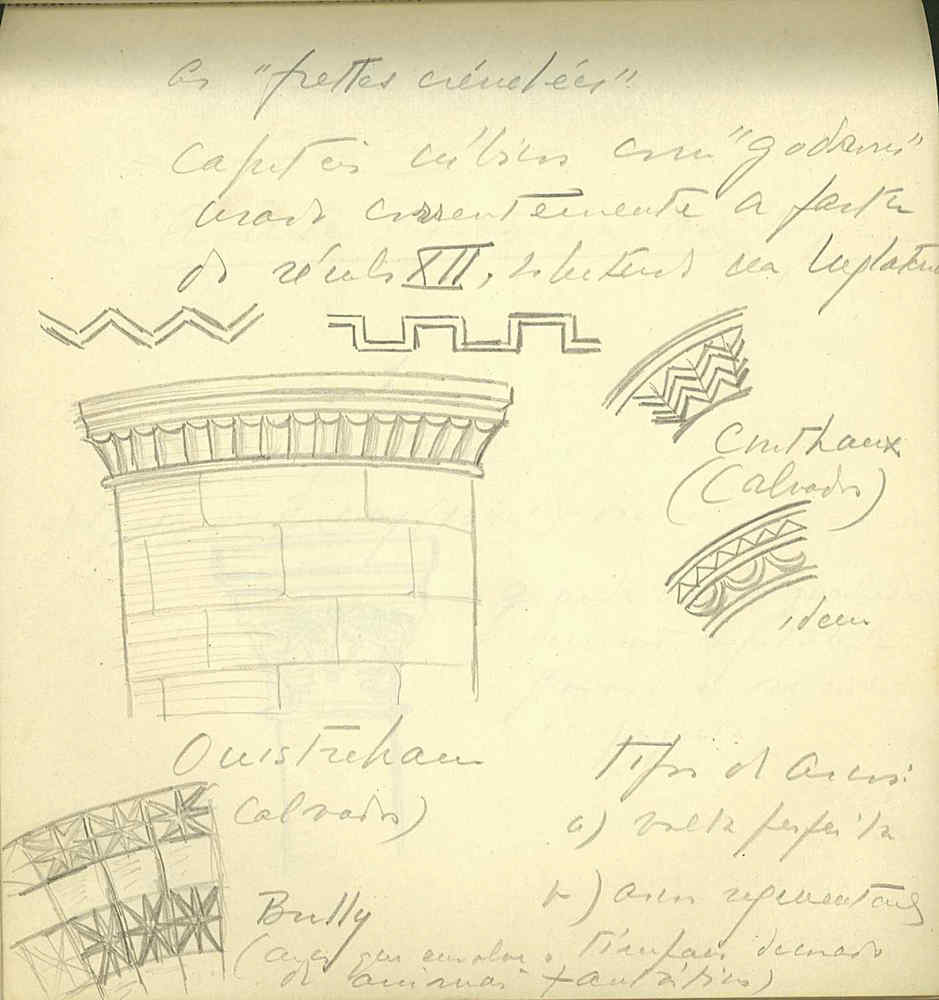 as "frettes crénelées".
Capiteis cúbicos com "godrons"
usado correntemente a partir
do século XII, sobretudo na Inglaterra
Conthaux
(Calvados)
idem
Ouistreham
Calvados)
Tipos de arcos:
a) volta perfeita
b) arcos segmentares
Bully
(arco que envolve o tímpano decorado
de animais fantásticos)